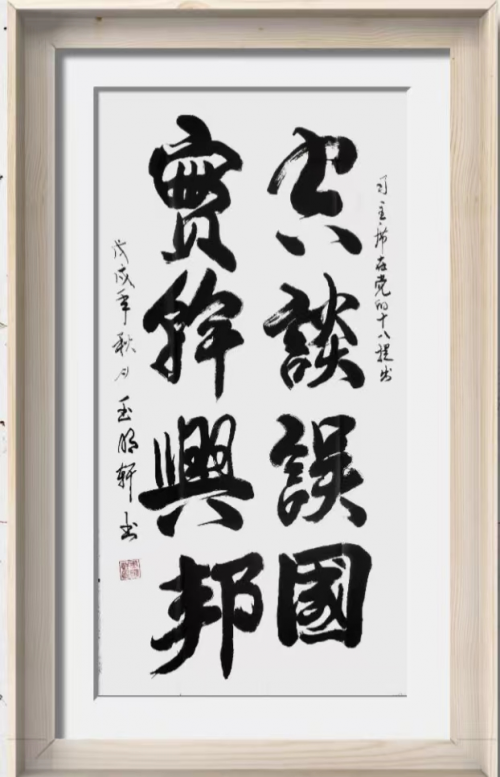 习主席在党的十八提出
空談誤國
實幹興邦
戊戌年秋月玉明轩书